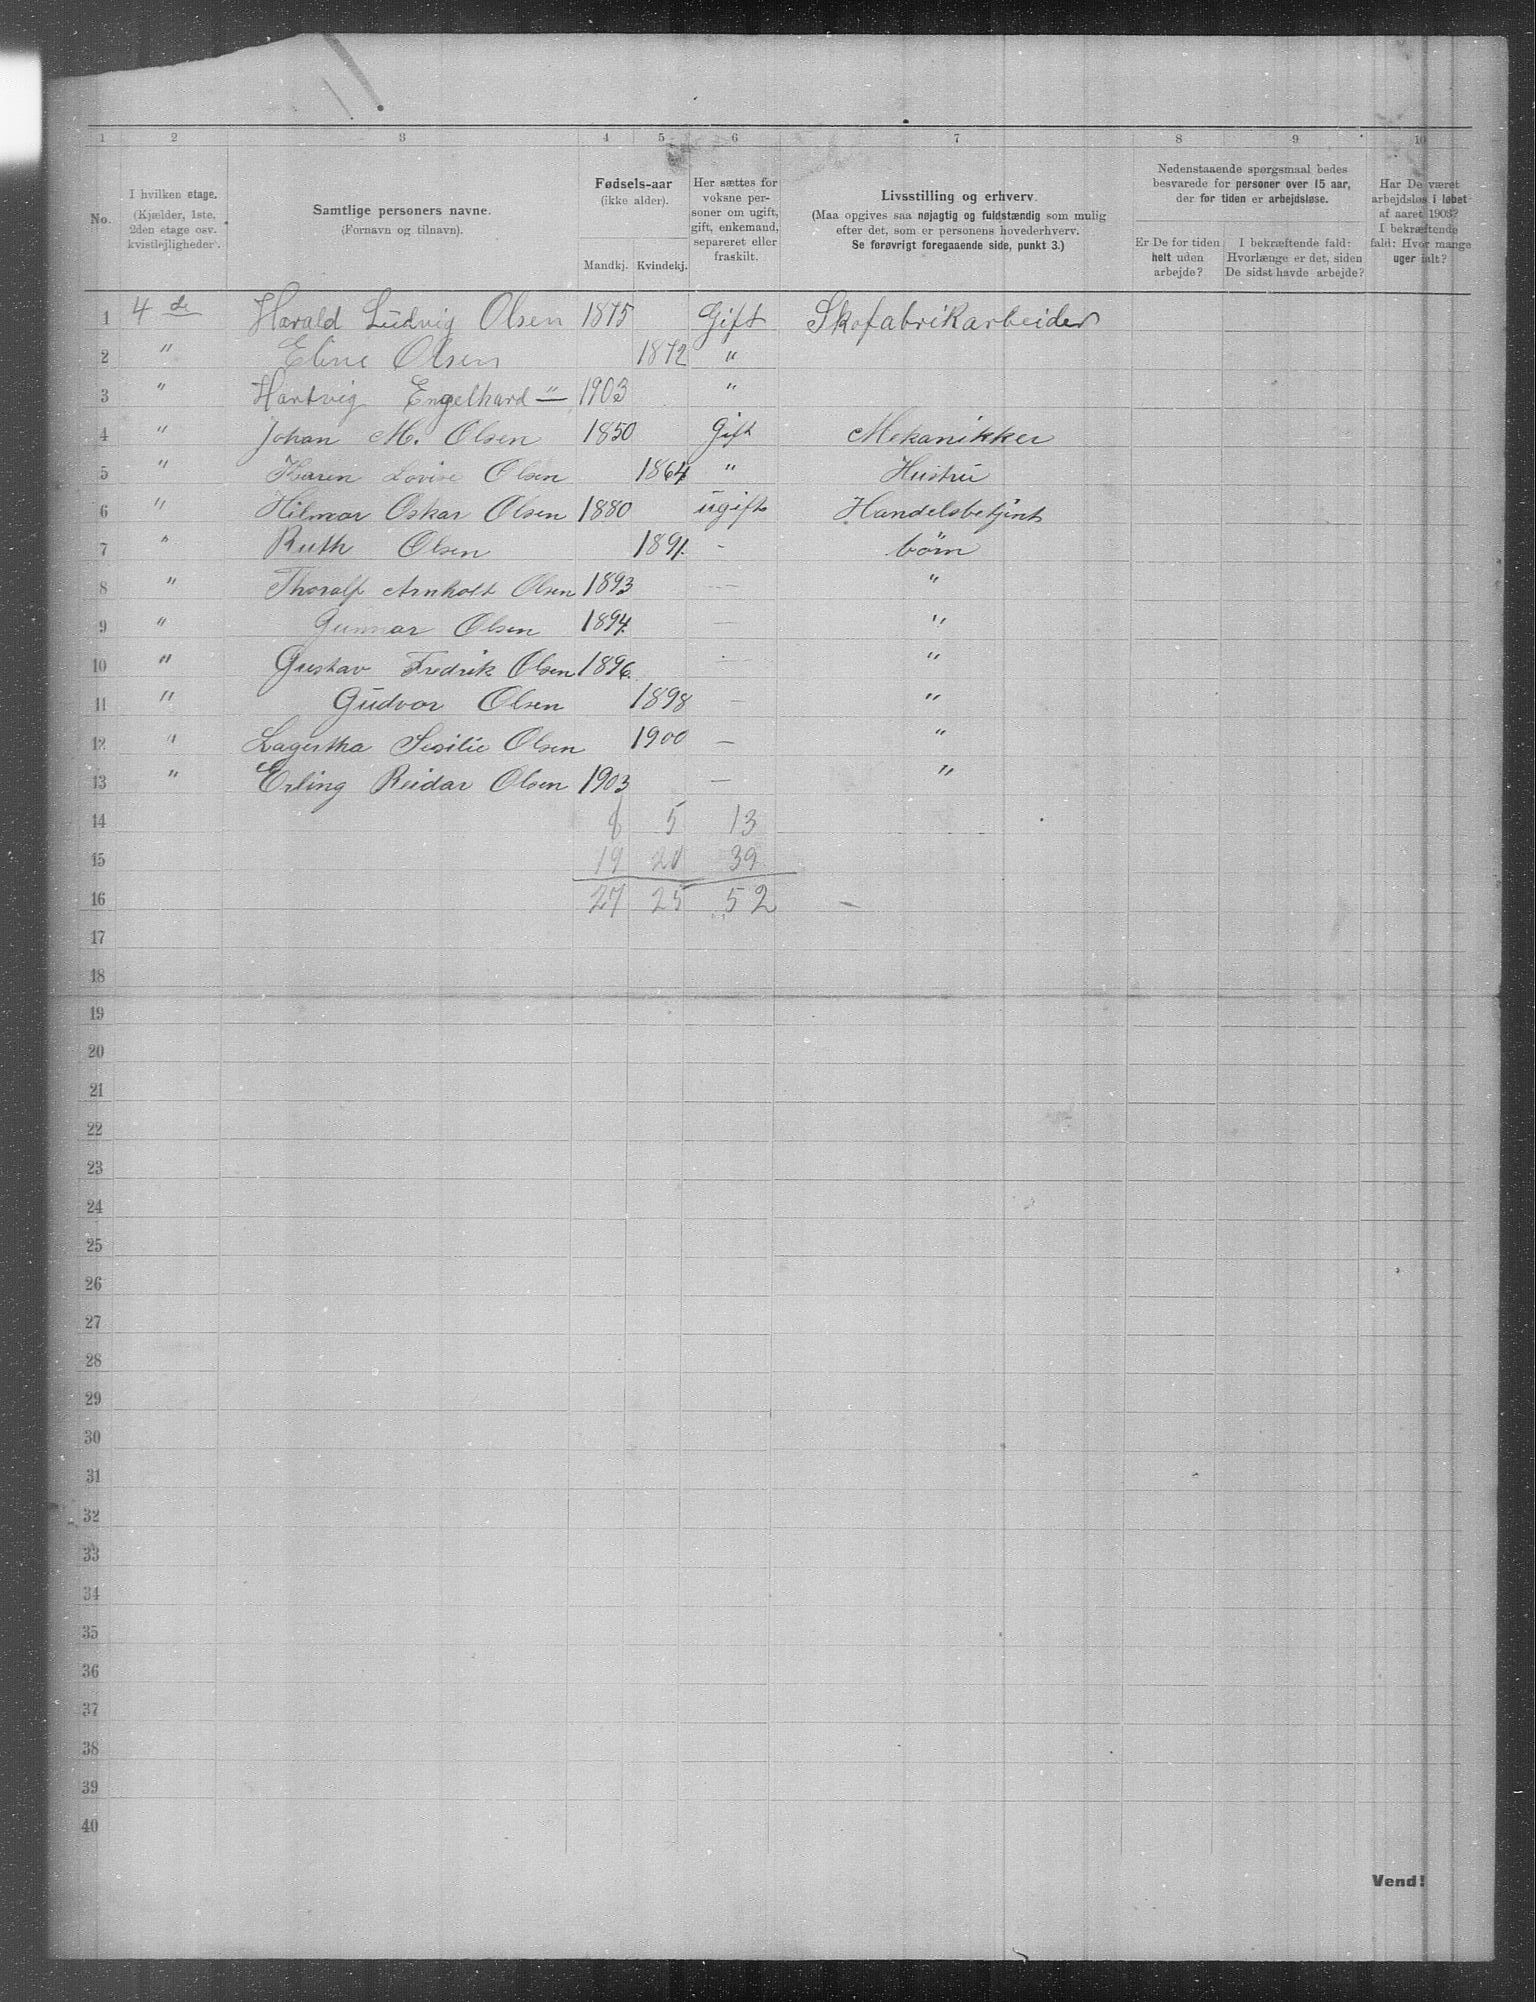 1 2 3 4 5 6 7 8 9 10
No.
I hvilken etage.
(Kjælder, 1ste,
2den etage osv.
kvistlejligheder).
Samtlige personers navne.
(Fornavn og tilnavn).
Fødsels-aar
(ikke alder).
Mandkj. Kvindekj.
Her sættes for
voksne per-
soner om ugift,
gift, enkemand,
separeret eller
fraskilt.
Livsstilling og erhverv.
(Maa opgives saa nøjagtig og fuldstændig som mulig
efter det, som er personens hovederhverv.
Se forøvrigt foregaaende side, punkt 3.)
Nedenstaaende spørgsmaal bedes
besvarede for personer over 15 aar,
der for tiden er arbejdsløse.
Er De for tiden
helt uden
arbejde?
I bekræftende fald:
Hvorlænge er det, siden
De sidst havde arbejde?
Har De været
arbejdsløs i løbet
af aaret 1903?
I bekræftende
fald: Hvor mange
uger ialt?
1 4 de Harald Ludvig Olsen 1875 Gift Skofabrikarbeider
2 " Eline Olsen 1872 "
3 " Hartvig Engelhard " 1903 "
4 " Johan M. Olsen 1850 Gift Mekanikker
5 " Karen Lovise Olsen 1864 " Hustru
6 " Hilmar Oskar Olsen 1880 ugift Handelsbetjent
7 " Ruth Olsen 1891. - børn
8 " Thoralf Arnholt Olsen 1893 — "
9 " Gunnar Olsen 1894. — "
10 " Gustav Fredrik Olsen 1896. — "
11 " Gudvor Olsen 1898 — "
12 " Lagertha Sesilie Olsen 1900 — "
13 " Erling Reidar Olsen 1903 — "
14 8 5 13
15 19 20 39
16 27 25 52
17
18
19
20
21
22
23
24
25
26
27
28
29
30
31
32
33
34
35
36
37
38
39
40
Vend!